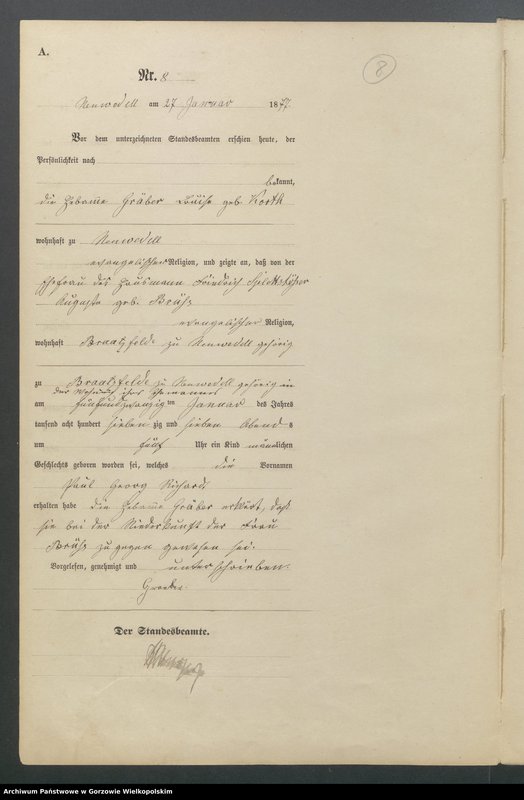 A.
8
Nr. 8
Neuwedell am 27 Januar 1877.
Vor dem unterzeichneten Standesbeamten erschien heute, der
Persönlichkeit nach
bekannt,
die Hebamme Gräber Louise geb. Korth
wohnhaft zu Neuwedell
evangelischer Religion, und zeigte an, daß von der
Ehefrau des Hausmann Friedrich
Auguste geb. Brüß
evangelischer Religion,
wohnhaft Braatzfelde zu Neuwedell gehörig
zu Braatzfelde zu Neuwedell gehörig in
der Wohnung ihres Ehemannes
am fünfundzwanzig ten Januar des Jahres
tausend acht hundert sieben zig und sieben Abend s
um fünf Uhr ein Kind männlichen
Geschlechts geboren worden sei, welches die Vornamen
Paul Georg Richard
erhalten habe die Hebamme Gräber erklärt, daß
sie bei der Niederkunft der Frau
Brüß zugegen gewesen sei.
Vorgelesen, genehmigt und unterschrieben.
Der Standesbeamte.
Archiwum Państwowe w Gorzowie Wielkopolskim